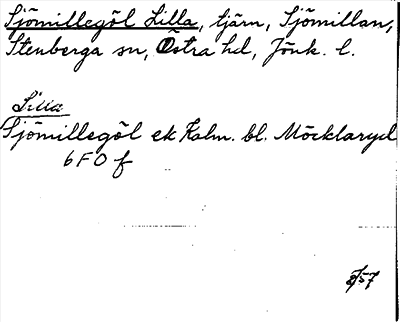 Sjömillegöl Lilla, tjärn, Sjömillan,
Stenberga sn, Östra hd, Jönk. l.
Lilla
Sjömillegöl ek Kalm. bl. Möcklaryd
6 F 0 f
57